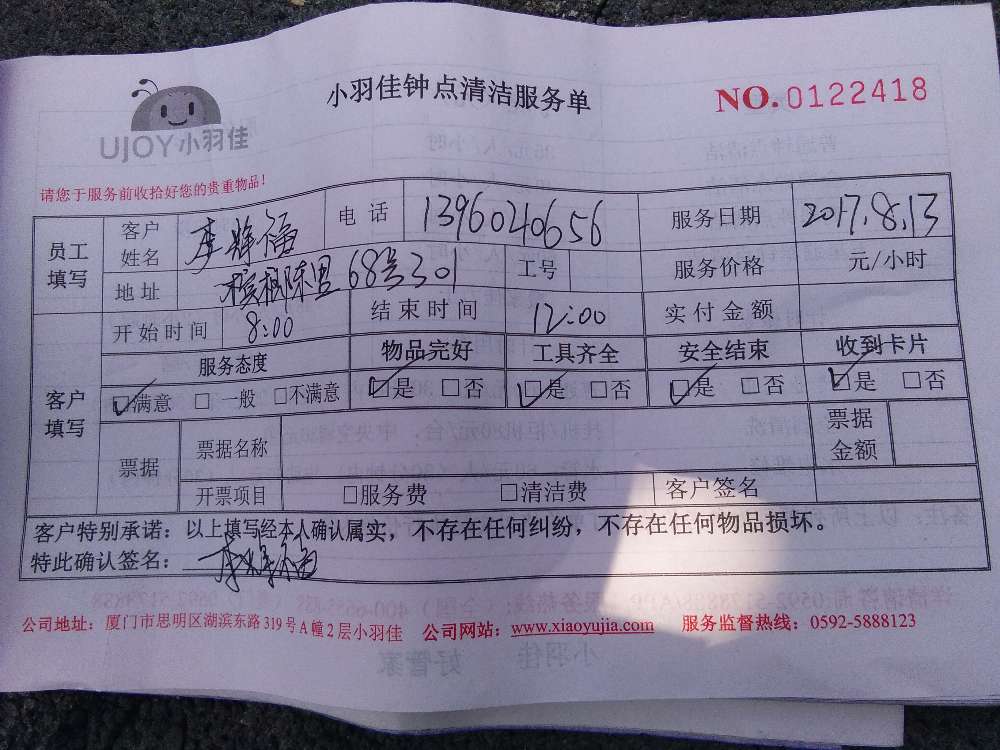 小羽佳钟点清洁服务单
NO.0122418
UJOY小羽佳
请您于服务前收拾好您的贵重物品!
员工填写 客户姓名 李 福 电话 13960240656 服务日期 2017.8.13
地址 68号301 工号 服务价格 元/小时
客户填写 开始时间 8:00 结束时间 12:00 实付金额
服务态度 物品完好 工具齐全 安全结束 收到卡片
☑满意 □一般 □不满意 ☑是 □否 ☑是 □否 ☑是 □否 ☑是 □否
票据 票据名称 票据金额
开票项目 □服务费 □清洁费 客户签名
客户特别承诺：以上填写经本人确认属实，不存在任何纠纷，不存在任何物品损坏。
特此确认签名：李 福
公司地址：厦门市思明区湖滨东路319号A幢2层小羽佳 公司网站：www.xiaoyujia.com 服务监督热线：0592-5888123